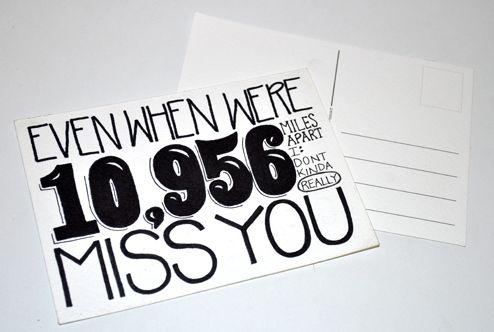 EVEN WHEN WERE
10,956
MILES
APART
I:
DONT
KINDA
REALLY
MISS YOU